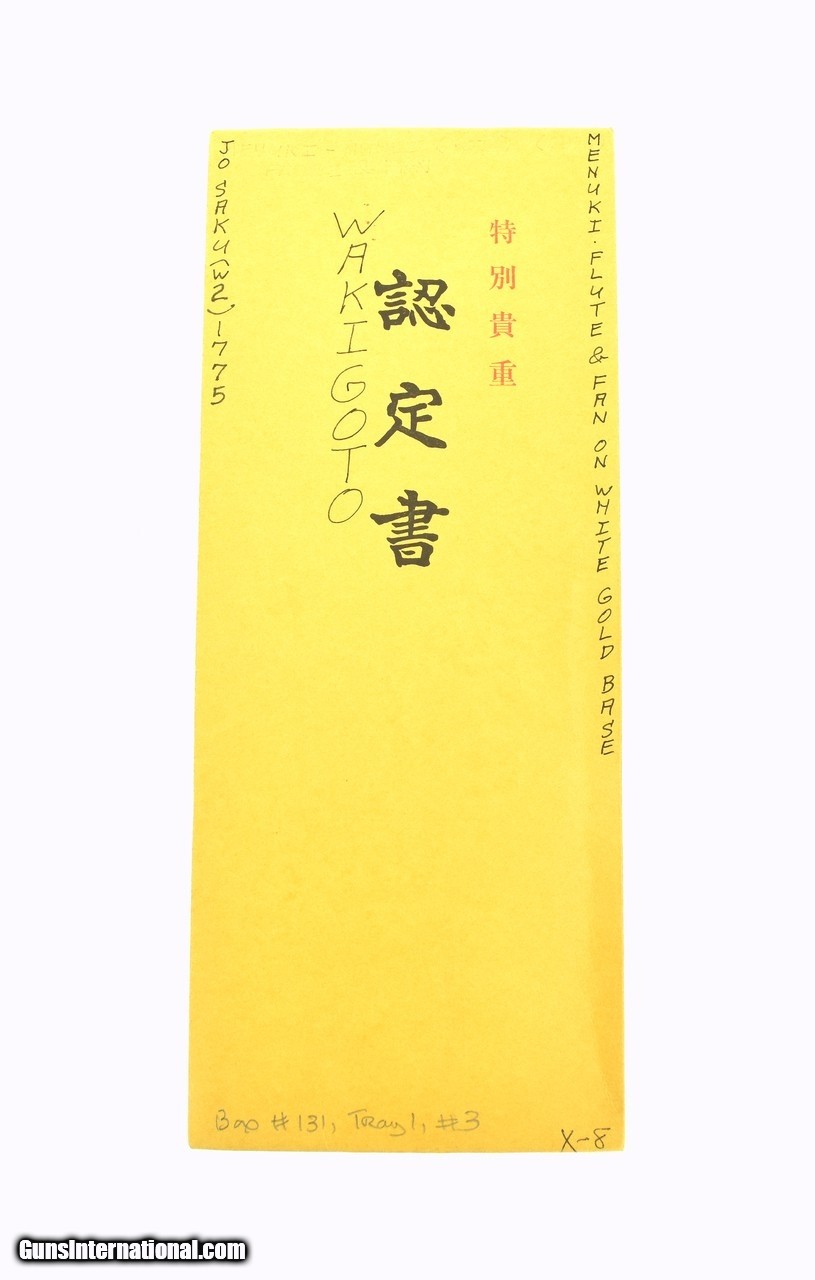 MENUKI. FLUTE & FAN ON WHITE GOLD BASE
特別貴重
認定書
WAKIGOTO
JO SAKU (W2) 1775
Box #131, Tray 1, #3
X-8
GunsInternational.com